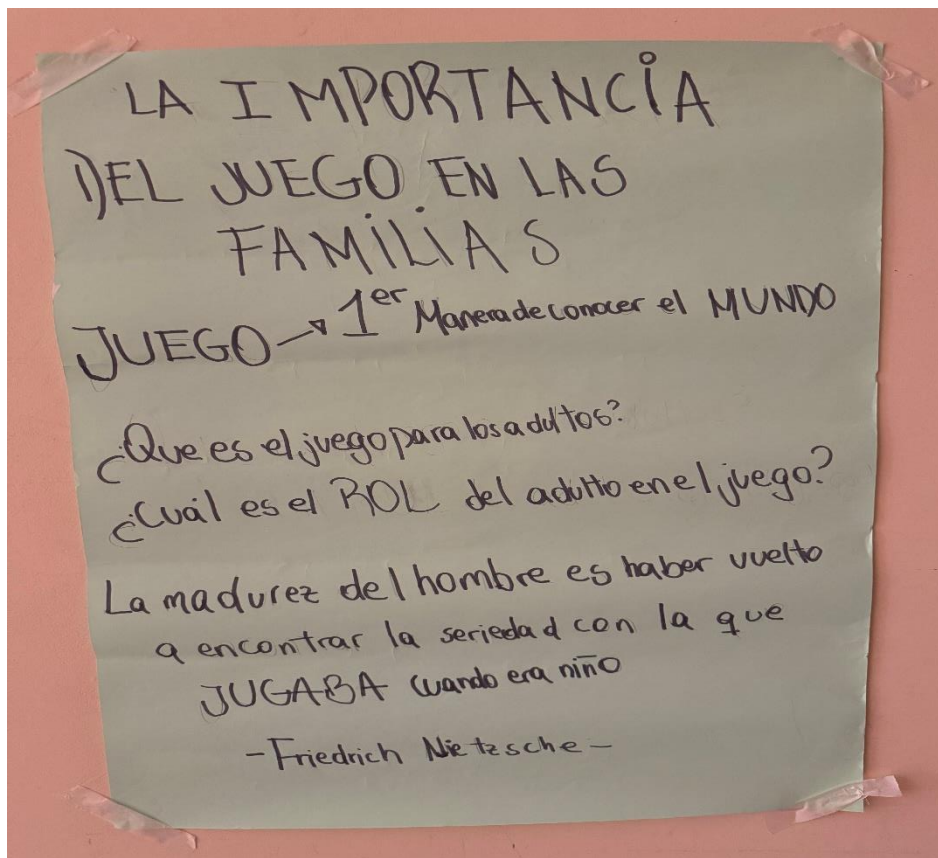 LA IMPORTANCIA
DEL JUEGO EN LAS
FAMILIAS
JUEGO → 1er Manera de conocer el MUNDO
¿Que es el juego para los adultos?
¿Cuál es el ROL del adulto en el juego?
La madurez del hombre es haber vuelto
a encontrar la seriedad con la que
JUGABA cuando era niño
-Friedrich Nietzsche-